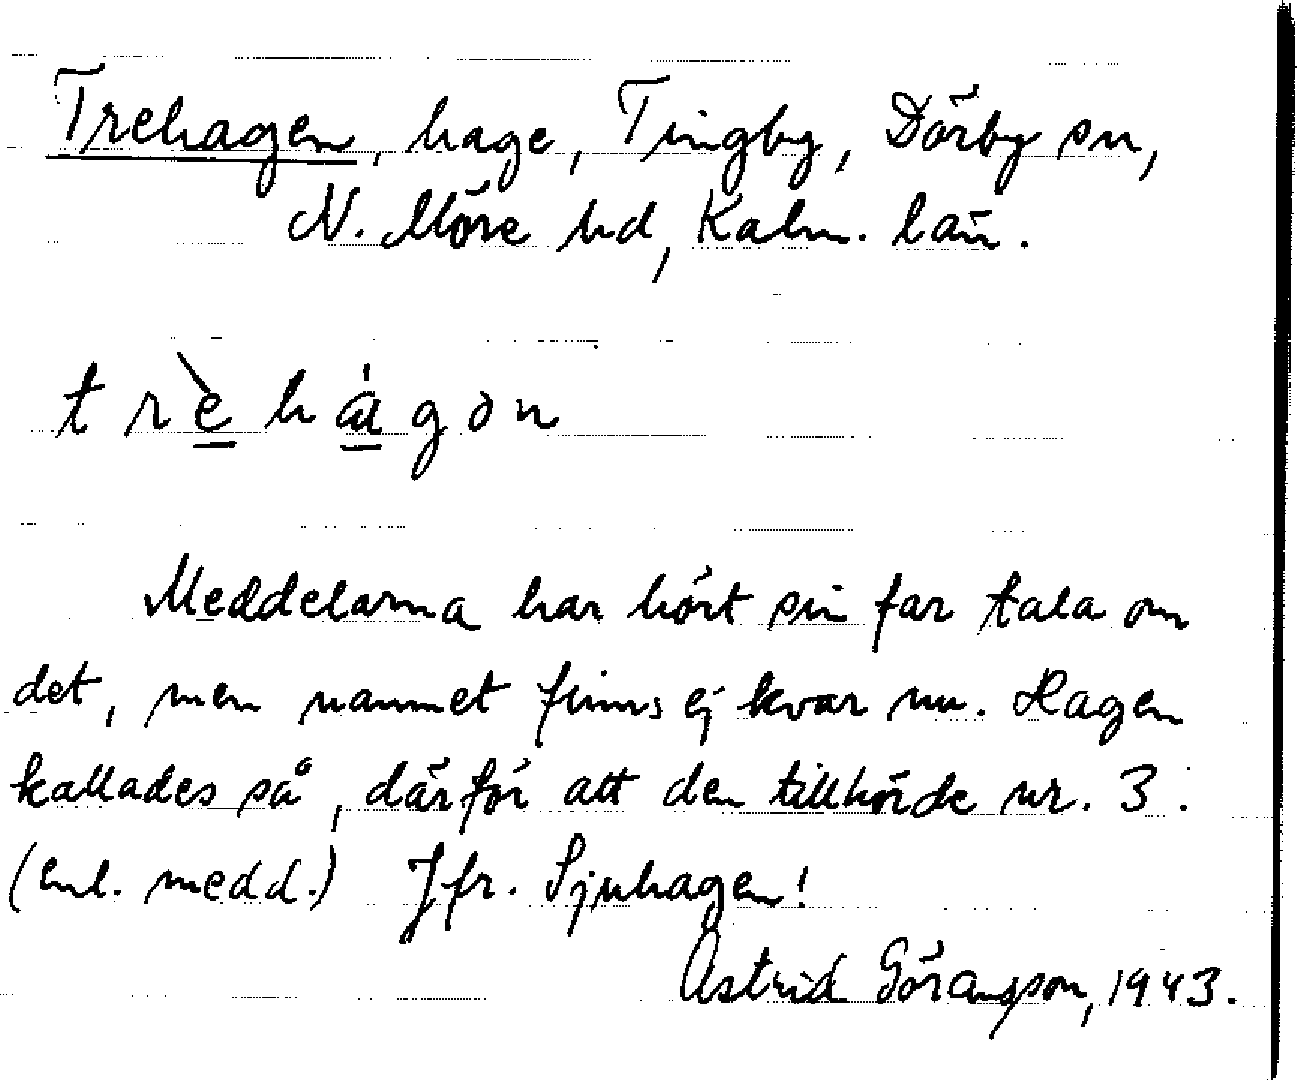 Trehagen, hage, Tingby, Dörby sn,
N. Möre hd, Kalm. län.
trèhágon
Meddelarna har hört sin far tala om
det, men namnet finns ej kvar nu. Hagen
kallades så, därför att den tillhörde nr. 3.
(enl. medd.) Jfr. Sjuhagen!
Astrid Göransson, 1943.